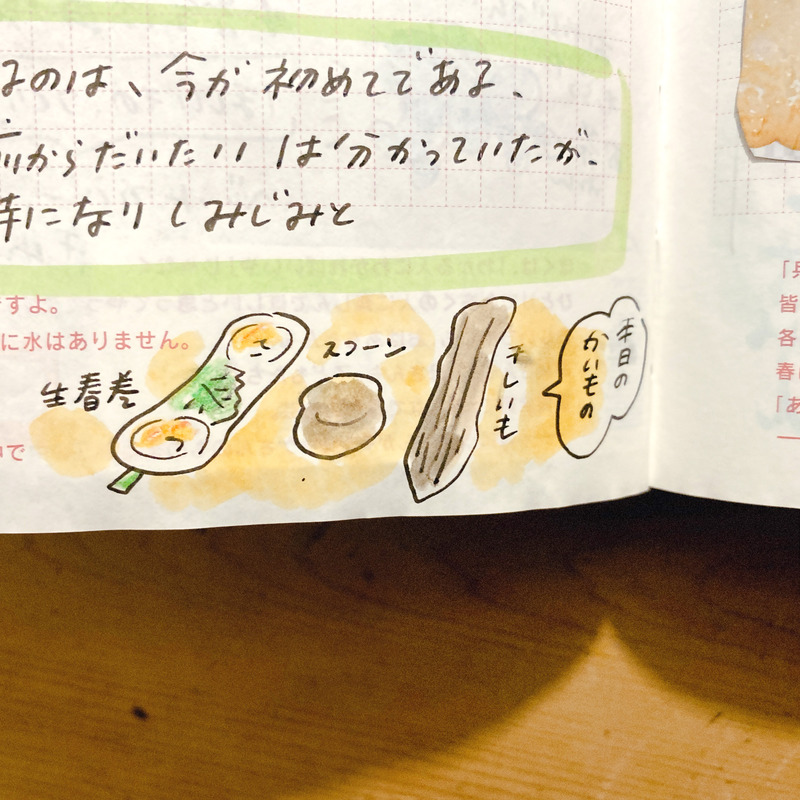 るのは、今が初めてである、
前からだいたいは分かっていたが、
になりしみじみと
ですよ。
に水はありません。
で
生春巻
スコーン
干しいも
本日の
かいもの
「
皆
各
春
「あ